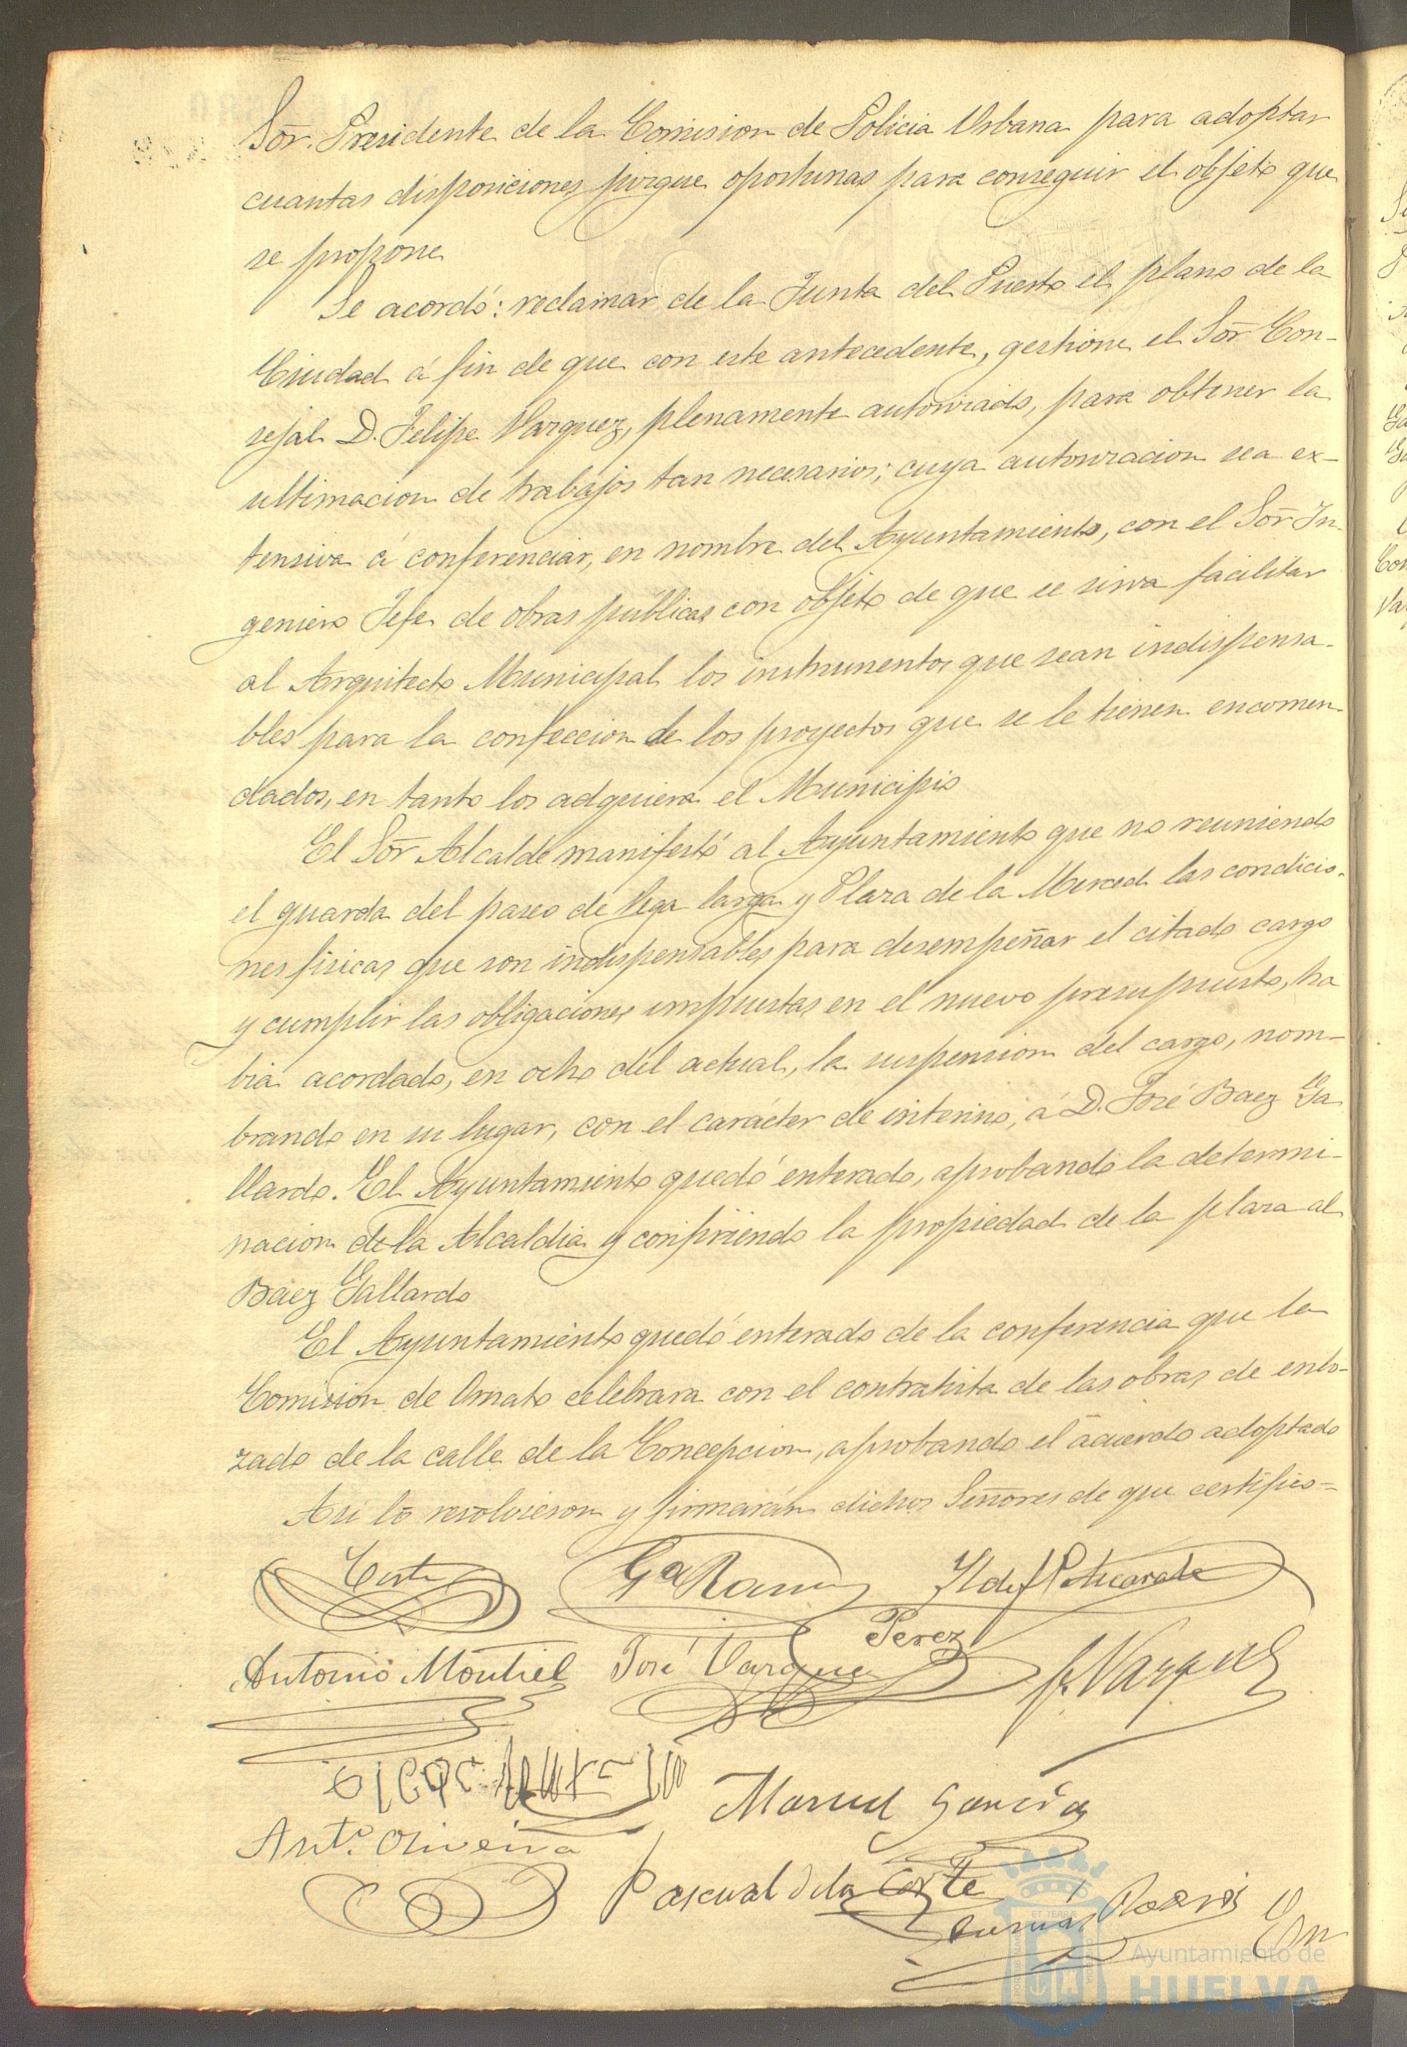 Sōr. Presidente de la Comision de Policia Urbana para adoptar
cuantas disposiciones juzgue oportunas para conseguir el objeto que
se propone
Se acordó: reclamar de la Junta del Puerto el plano de la
Ciudad á fin de que con este antecedente, gestione el Sōr Con-
sejal D. Felipe Vazquez, plenamente autorizado, para obtener la
ultimacion de trabajos tan necesarios; cuya autorizacion sea ex-
tensiva á conferenciar, en nombre del Ayuntamiento, con el Sōr In-
geniero Jefe de obras publicas con objeto de que se sirva facilitar
al Arquitecto Municipal los instrumentos que sean indispensa-
bles para la confeccion de los proyectos que se le tienen encomen-
dados, en tanto los adquiera el Municipio
El Sōr Alcalde manifestó al Ayuntamiento que no reuniendo
el guarda del paseo de Vega larga y Plaza de la Merced las condicio-
nes fisicas que son indispensables para desempeñar el citado cargo
y cumplir las obligaciones impuestas en el nuevo presupuesto, ha
bia acordado, en ocho del actual, la suspension del cargo, nom-
brando en su lugar, con el carácter de interino, á D. José Baez Ga
llardo. El Ayuntamiento quedó enterado, aprobando la determi-
nacion de la Alcaldia y confiriendo la propiedad de la plaza al
Baez Gallardo
El Ayuntamiento quedó enterado de la conferencia que la
Comision de Ornato celebrara con el contratista de las obras de enlo-
zado de la calle de la Concepcion, aprobando el acuerdo adoptado
Asi lo resolvieron y firmarán dichos Señores de que certifico=
Gª Ramy
Perez
Antonio Montiel José Vazquez F. Vazquez
Manuel García
Antº. Oliveira
Pascual de la Corte
Ayuntamiento de
HUELVA